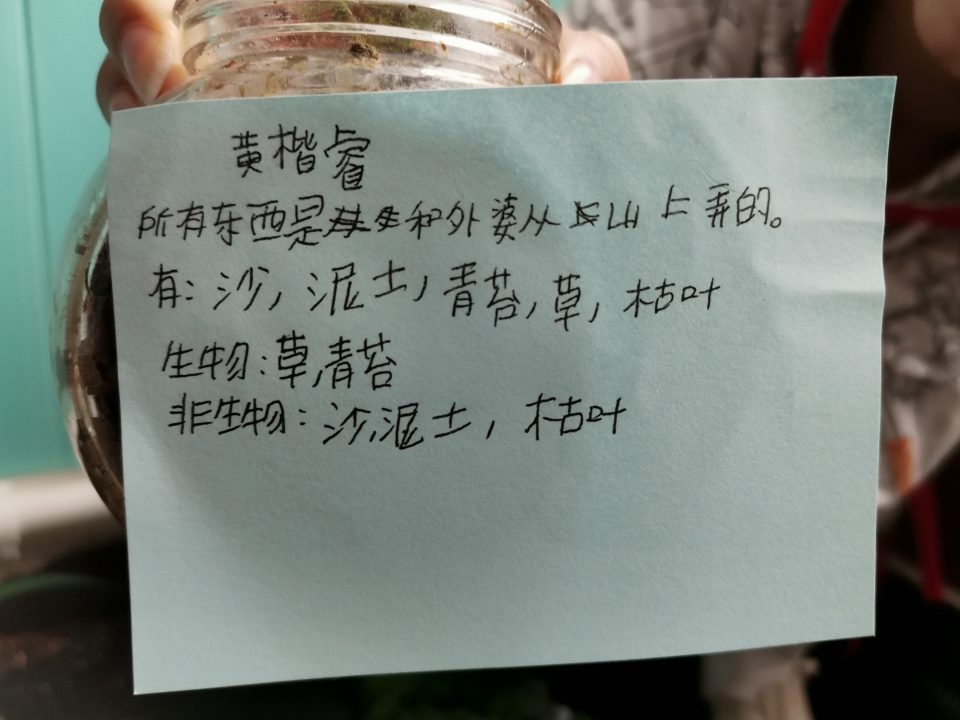 黄楷睿
所有东西是和外婆从后山上弄的。
有：沙，泥土，青苔，草，枯叶
生物：草，青苔
非生物：沙，泥土，枯叶